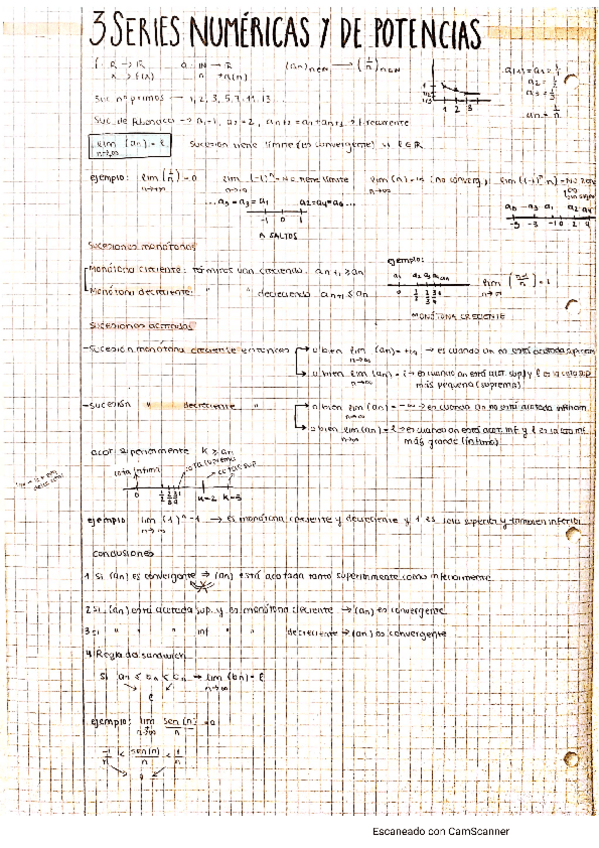 3 SERIES NUMÉRICAS Y DE POTENCIAS
f: R → R a: N → R (an) n∈N → (1/n) n∈N
n → a(n)
1 2 3
Suc. nº primos → 1, 2, 3, 5, 7, 11, 13
Suc. de Fibonacci → a1=1, a2=2, an+2 = an+an+1 → recurrente
lim (an) = ℓ Sucesión tiene límite (es convergente) si ℓ∈R
n→∞
ejemplo: lim (1/n) = 0 lim (-1)^n = no tiene límite lim (n) = +∞ (no converg.) lim (-1)^n n) = No
n→∞ n→∞ n→∞
...a5=a3=a1 a2=a4=a6...
-1 0 1
A SALTOS
a5 a3 a1 a2 a4
-5 -3 -1 0 2 4
Sucesiones monótonas
ejemplo:
Monótona creciente: términos van creciendo. an+1 ≥ an
Monótona decreciente: " " decreciendo an+1 ≤ an
lim (n-1/n) = 1
n→∞
MONÓTONA CRECIENTE
Sucesiones acotadas
-Sucesión monótona creciente entonces o bien lim (an) = +∞ → es cuando an no está acotada superiorm
n→∞
o bien lim (an) = ℓ → es cuando an está acot. sup y ℓ es la cota sup
n→∞ más pequeña (supremo)
-Sucesión " decreciente " o bien lim (an) = -∞ → es cuando an no está acotada inferiorm
n→∞
o bien lim (an) = ℓ → es cuando an está acot. inf y ℓ es la cota inf
n→∞ más grande (ínfimo)
acot. superiormente K ≥ an
cota ínfima cota suprema cota sup
0 K=2 K=3
ejemplo: lim (1)^n = 1 → es monótona creciente y decreciente y 1 es cota superior y también inferior
n→∞
Conclusiones
1 Si (an) es convergente ⇒ (an) está acotada tanto superiormente como inferiormente
2 Si (an) está acotada sup. y es monótona creciente → (an) es convergente
3 Si " " " inf " " decreciente → (an) es convergente
4 Regla de sandwich
Si an ≤ bn ≤ cn → lim (bn) = ℓ
n→∞
ℓ
ejemplo: lim sen(n)/n = 0
n→∞
-1/n ≤ sen(n)/n ≤ 1/n
0
Escaneado con CamScanner